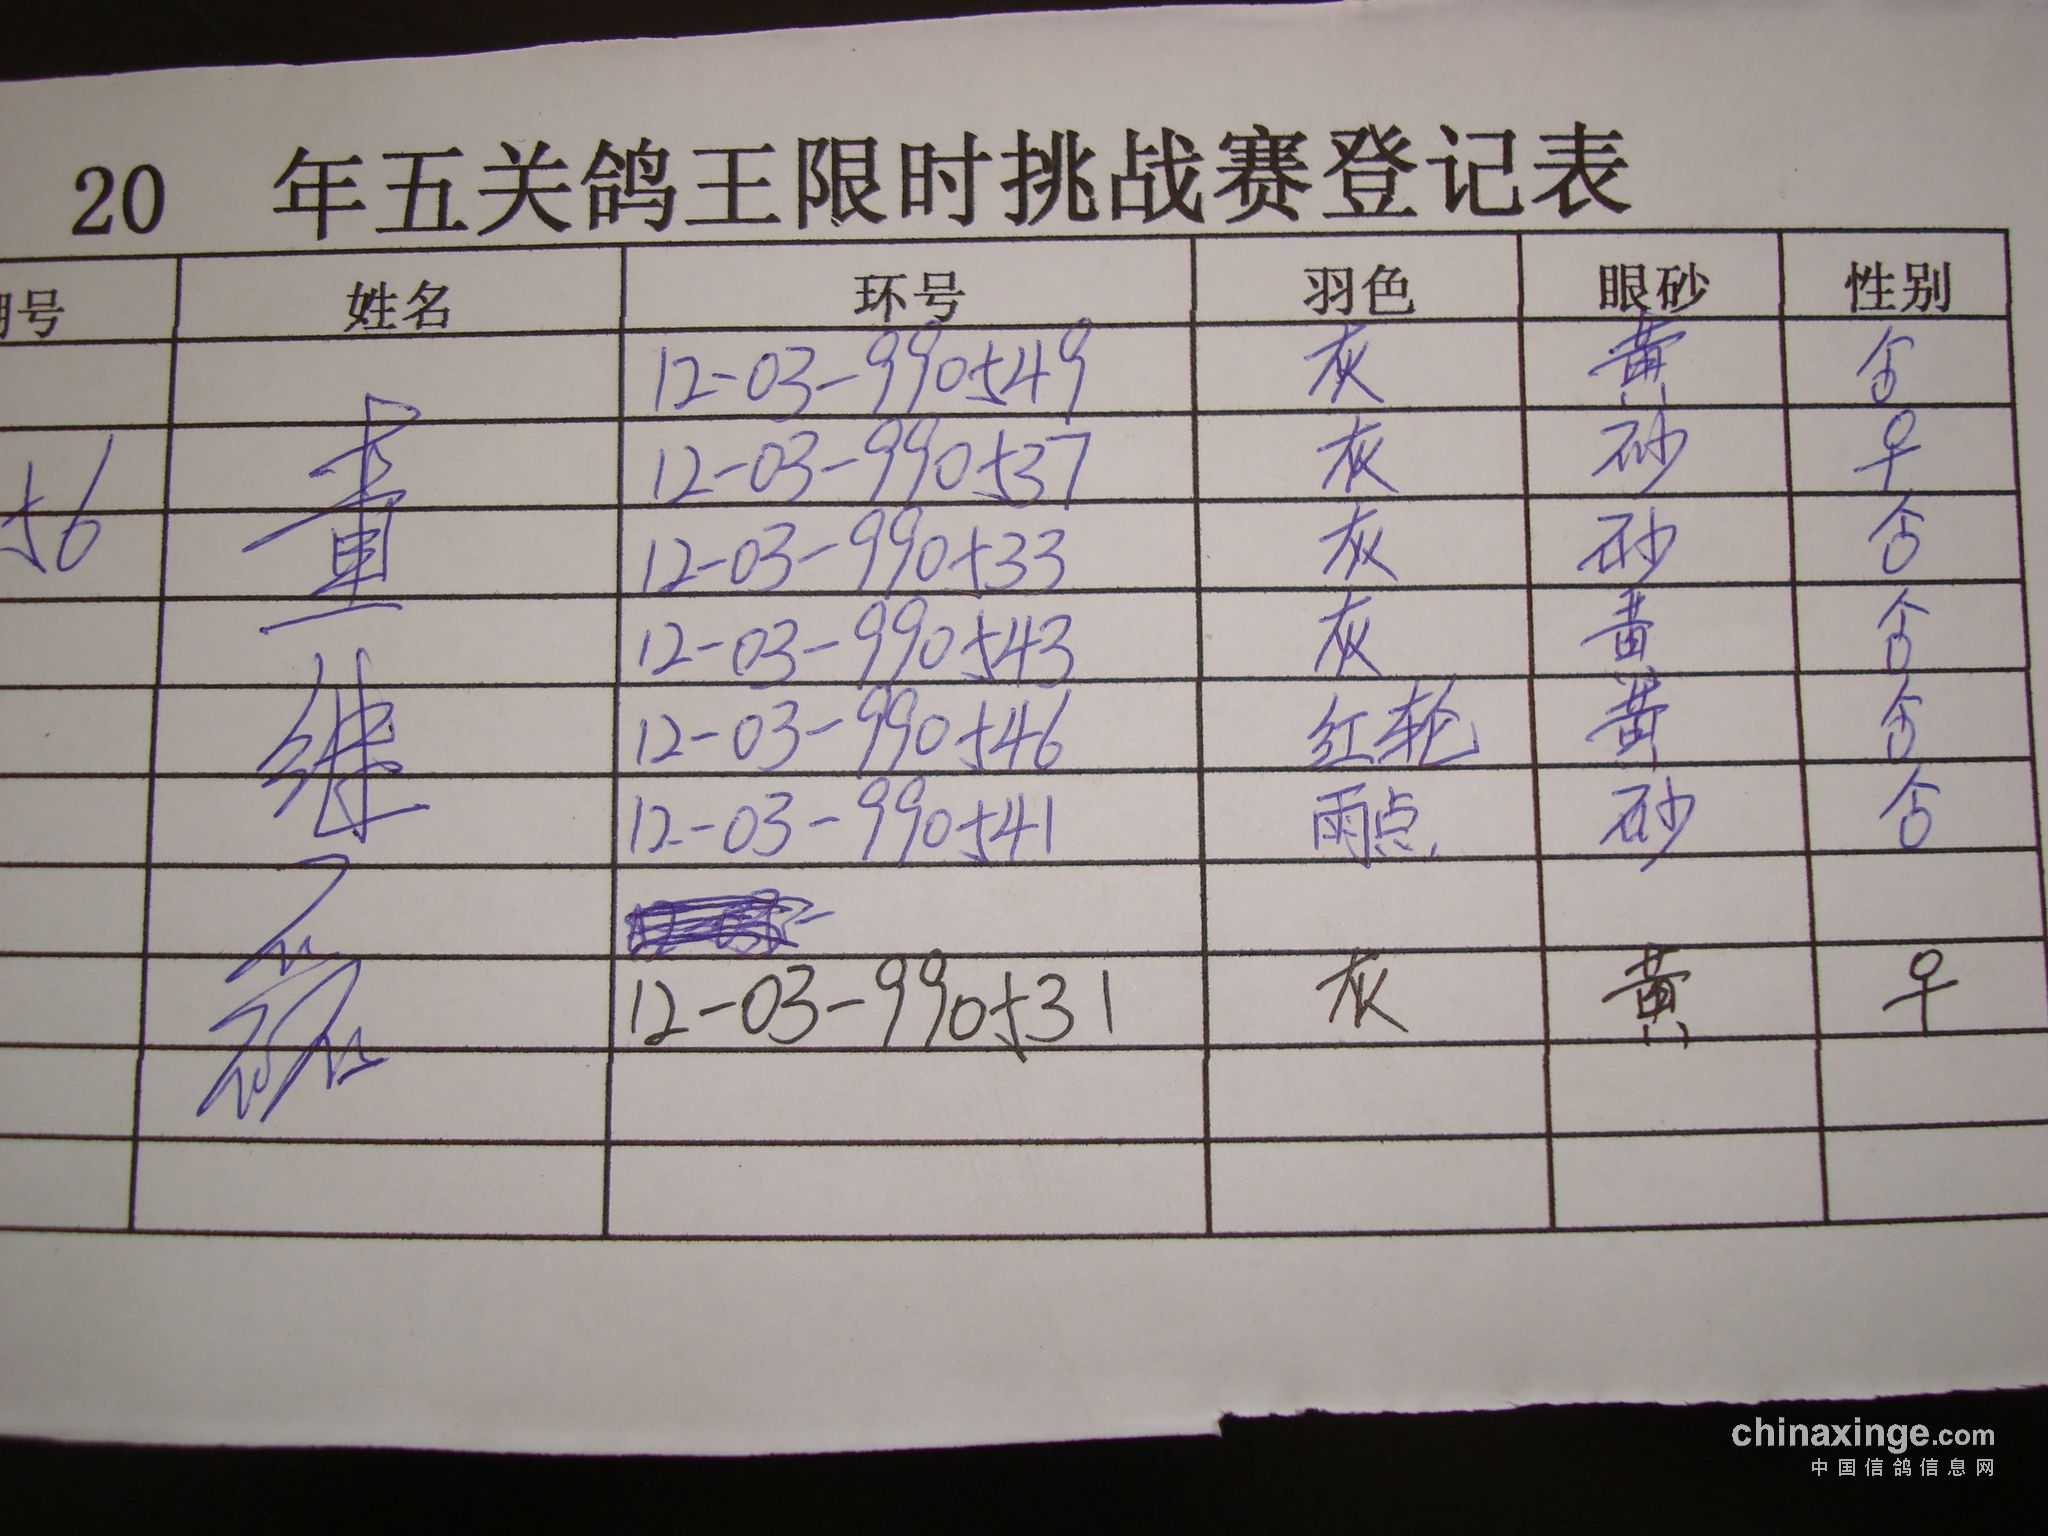 20 年五关鸽王限时挑战赛登记表
号 姓名 环号 羽色 眼砂 性别
12-03-990549 灰 黄
12-03-990537 灰 砂 ♀
56 12-03-990533 灰 砂
12-03-990543 灰 黄
继 12-03-990546 红轮 黄
12-03-990541 雨点 砂
12-03-990531 灰 黄 ♀
chinaxinge.com
中国信鸽信息网